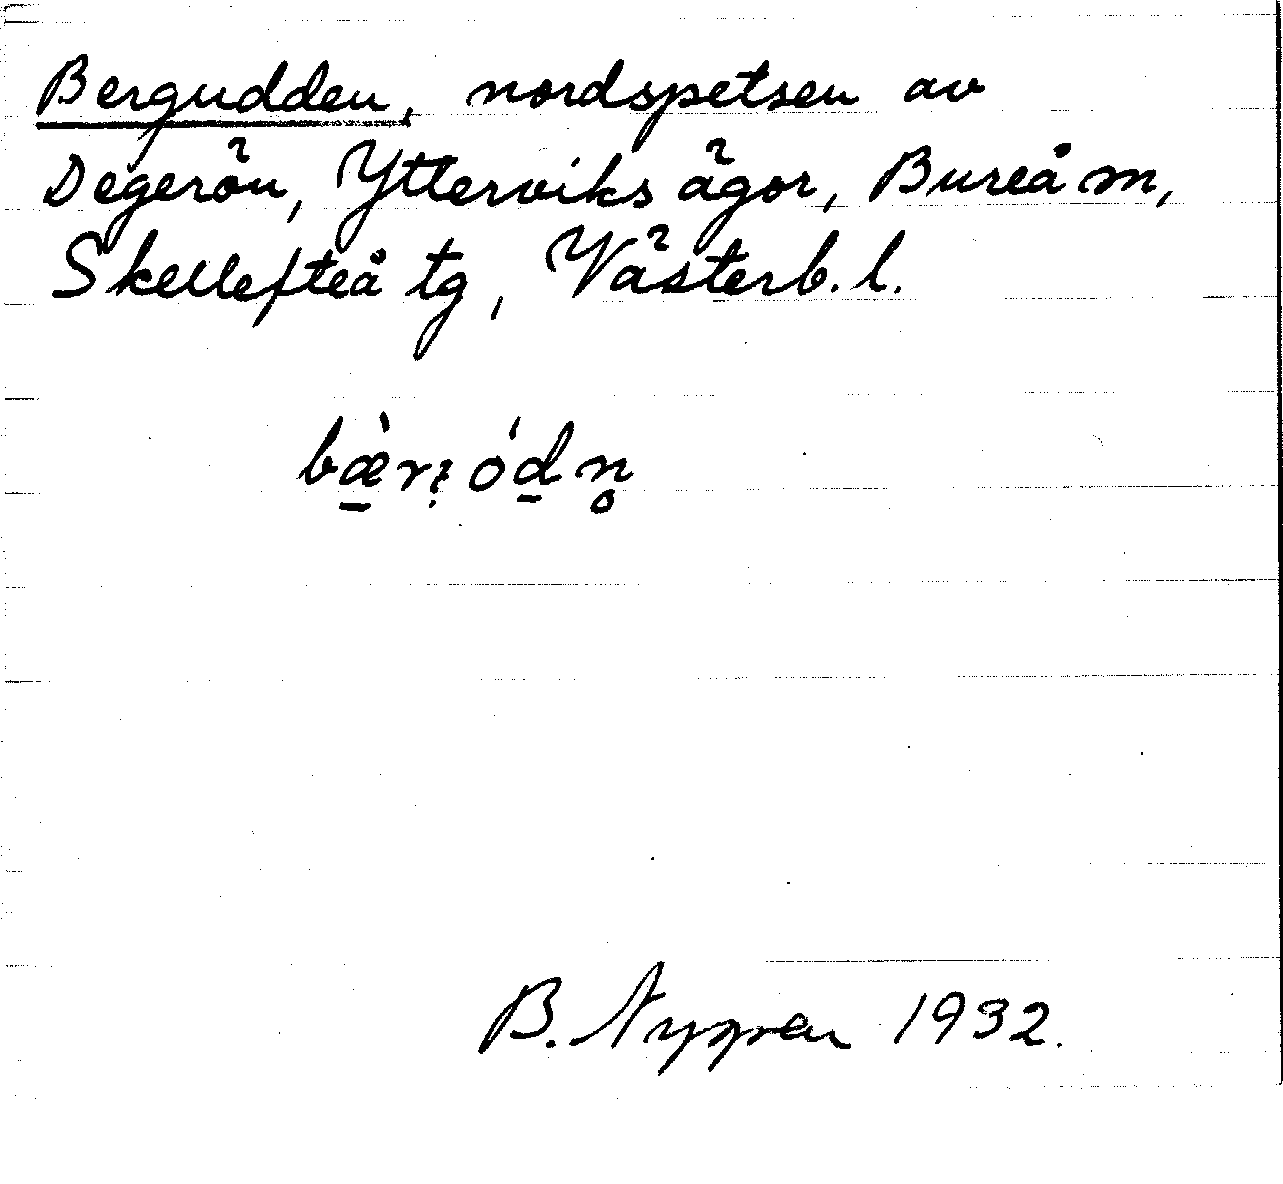 Bergudden, nordspetsen av
Degerön, Ytterviks ägor, Bureå m,
Skellefteå tg, Västerb. l.
B. Nygren 1932.